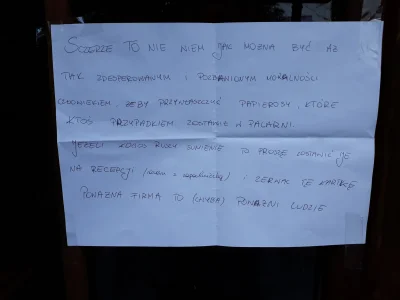 SZCZERZE TO NIE WIEM JAK MOŻNA BYĆ AŻ
TAK ZDESPEROWANYM I POZBAWIONYM MORALNOŚCI
CZŁOWIEKIEM, ŻEBY PRZYWŁASZCZYĆ PAPIEROSY, KTÓRE
KTOŚ PRZYPADKIEM ZOSTAWIŁ W PALARNI.
JEŻELI KOGOŚ RUSZY SUMIENIE TO PROSZĘ ZOSTAWIĆ JE
NA RECEPCJI (wraz z zapalniczką) I ZERWAĆ TĘ KARTKĘ
POWAŻNA FIRMA TO (CHYBA) POWAŻNI LUDZIE